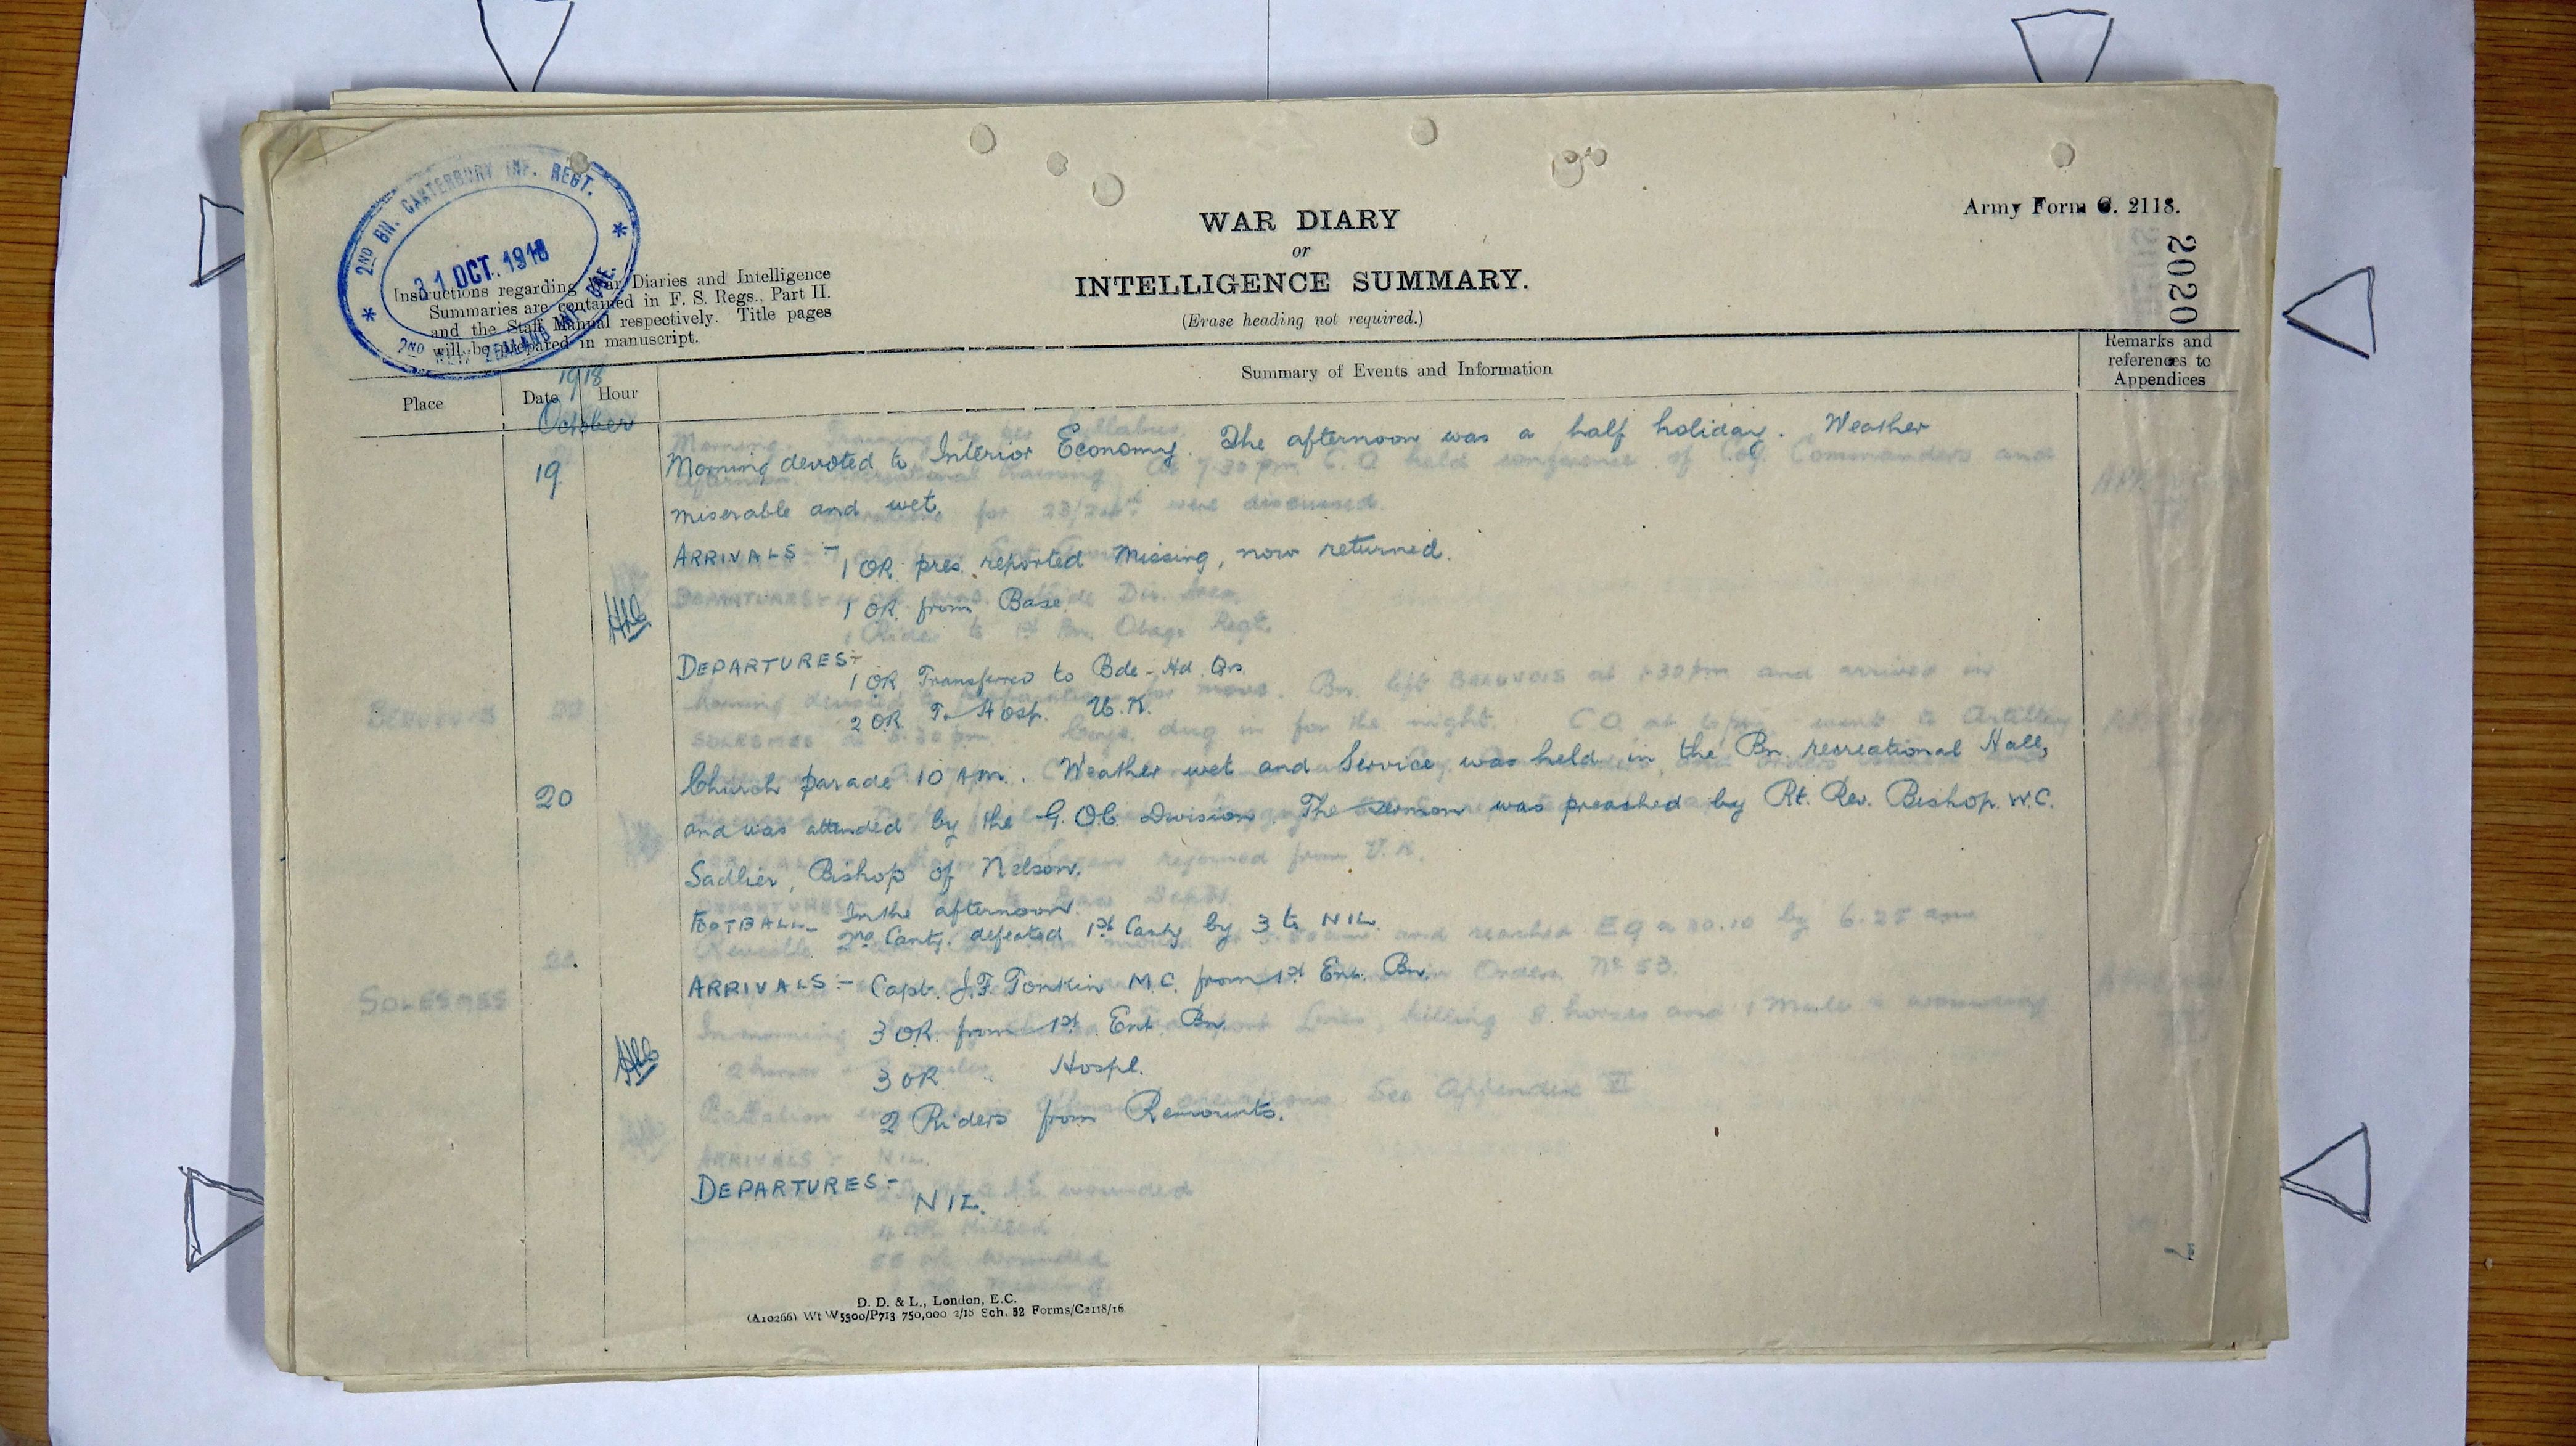 2ND BN. CANTERBURY INF. REGT.
31 OCT. 1918
2ND NEW ZEALAND INF. BDE.
Army Form C. 2118.
2020
WAR DIARY
or
INTELLIGENCE SUMMARY.
(Erase heading not required.)
Instructions regarding War Diaries and Intelligence
Summaries are contained in F. S. Regs., Part II.
and the Staff Manual respectively. Title pages
will be prepared in manuscript.
Place
Date
Hour
Summary of Events and Information
Remarks and
references to
Appendices
1918
October
19
Morning devoted to Interior Economy. The afternoon was a half holiday. Weather
miserable and wet.
ARRIVALS :-
1 OR. prev. reported Missing, now returned.
1 OR. from Base
DEPARTURES:-
1 OR Transferred to Bde. Hd. Qrs.
2 OR. To Hosp. U.K.
20
Church parade 10 AM. Weather wet and Service was held in the Bn. recreational Hall,
and was attended by the G.O.C. Division. The sermon was preached by Rt. Rev. Bishop. W.C.
Sadlier, Bishop of Nelson.
FOOTBALL- In the afternoon
2nd Canty. defeated 1st Canty by 3 to NIL.
ARRIVALS :- Capt. J.F. Tonkin M.C. from 1st Ent. Bn.
3 OR. from 1st. Ent. Bn.
3 OR " Hospl.
2 Riders from Remounts.
DEPARTURES:-
NIL.
D. D. & L., London, E.C.
(A10266) Wt W5300/P713 750,000 2/18 Sch. 52 Forms/C2118/16